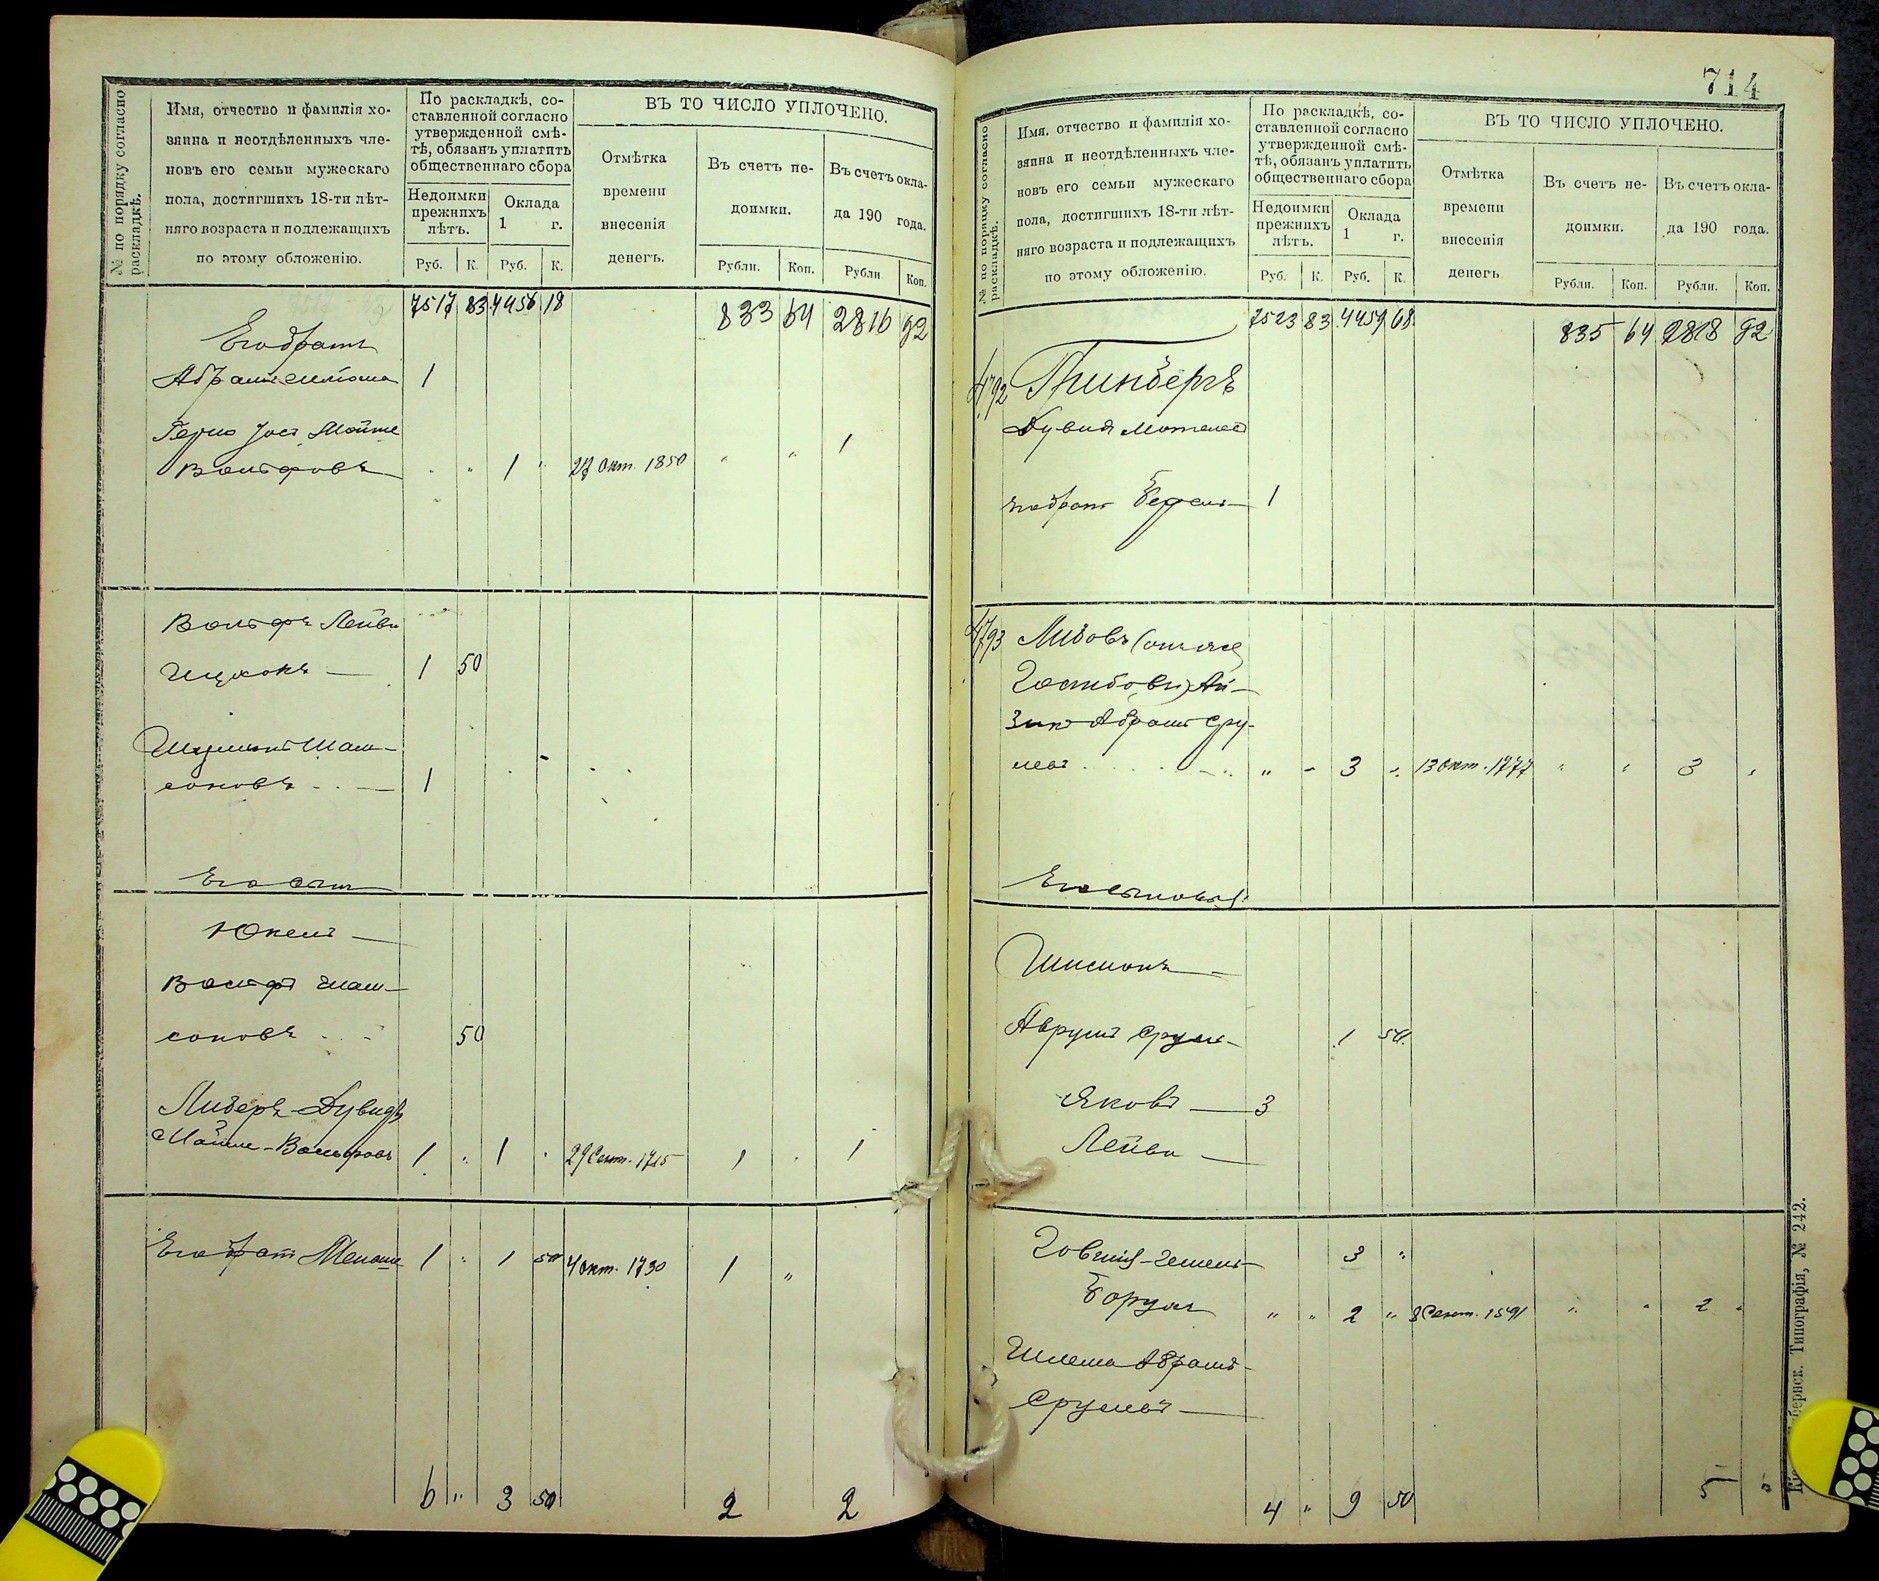 № по порядку согласно раскладкѣ.
Имя, отчество и фамилія хо-
зяина и неотдѣленныхъ чле-
новъ его семьи мужескаго
пола, достигшихъ 18-ти лѣт-
няго возраста и подлежащихъ
по этому обложенію.
По раскладкѣ, со-
ставленной согласно
утвержденной смѣ-
тѣ, обязанъ уплатить
общественнаго сбора
Недоимки
прежнихъ
лѣтъ.
Оклада
1 г.
Руб. К. Руб. К.
ВЪ ТО ЧИСЛО УПЛОЧЕНО.
Отмѣтка
времени
внесенія
денегъ.
Въ счетъ не-
доимки.
Въ счетъ окла-
да 190 года.
Рубли. Коп. Рубли Коп.
7517 83 4456 18 833 64 2816 92
Его братъ
Абрамъ 1
Герш Іос Мойше
Вольфовъ " " 1 " 27 Окт. 1850 " " 1
Вольфъ Лейви
1 50
Шам-
соновъ 1
Его сынъ
Юкель
Вольфъ Шам-
соновъ 50
Либеръ-Дувидъ
Мойше-Вольфовъ 1 " 1 " 29 Сент. 1715 1 " 1
Его братъ Менаше 1 " 1 50 4 Окт. 1730 1 "
6 " 3 50 2 2
714
№ по порядку согласно раскладкѣ.
Имя, отчество и фамилія хо-
зяина и неотдѣленныхъ чле-
новъ его семьи мужескаго
пола, достигшихъ 18-ти лѣт-
няго возраста и подлежащихъ
по этому обложенію.
По раскладкѣ, со-
ставленной согласно
утвержденной смѣ-
тѣ, обязанъ уплатить
общественнаго сбора
Недоимки
прежнихъ
лѣтъ.
Оклада
1 г.
Руб. К. Руб. К.
ВЪ ТО ЧИСЛО УПЛОЧЕНО.
Отмѣтка
времени
внесенія
денегъ
Въ счетъ не-
доимки.
Въ счетъ окла-
да 190 года.
Рубли. Коп. Рубли. Коп.
7523 83 4459 68 835 64 2818 92
4792 Гринбергъ
Дувид
его братъ Берель 1
4793 Либовъ
Ай-
зикъ Абрамъ Сру-
левъ " " 3 " 13 Окт. 1777 " " 3 "
Его сыновья:
Шимонъ
Аврумъ Сруль 1 50
Яковъ 3
Лейви
3 "
Борухъ " " 2 " 8 Сент. 1591 " " 2 "
Шлема Абрамъ
Срулевъ
4 " 9 50 5 "
Типографія, № 242.